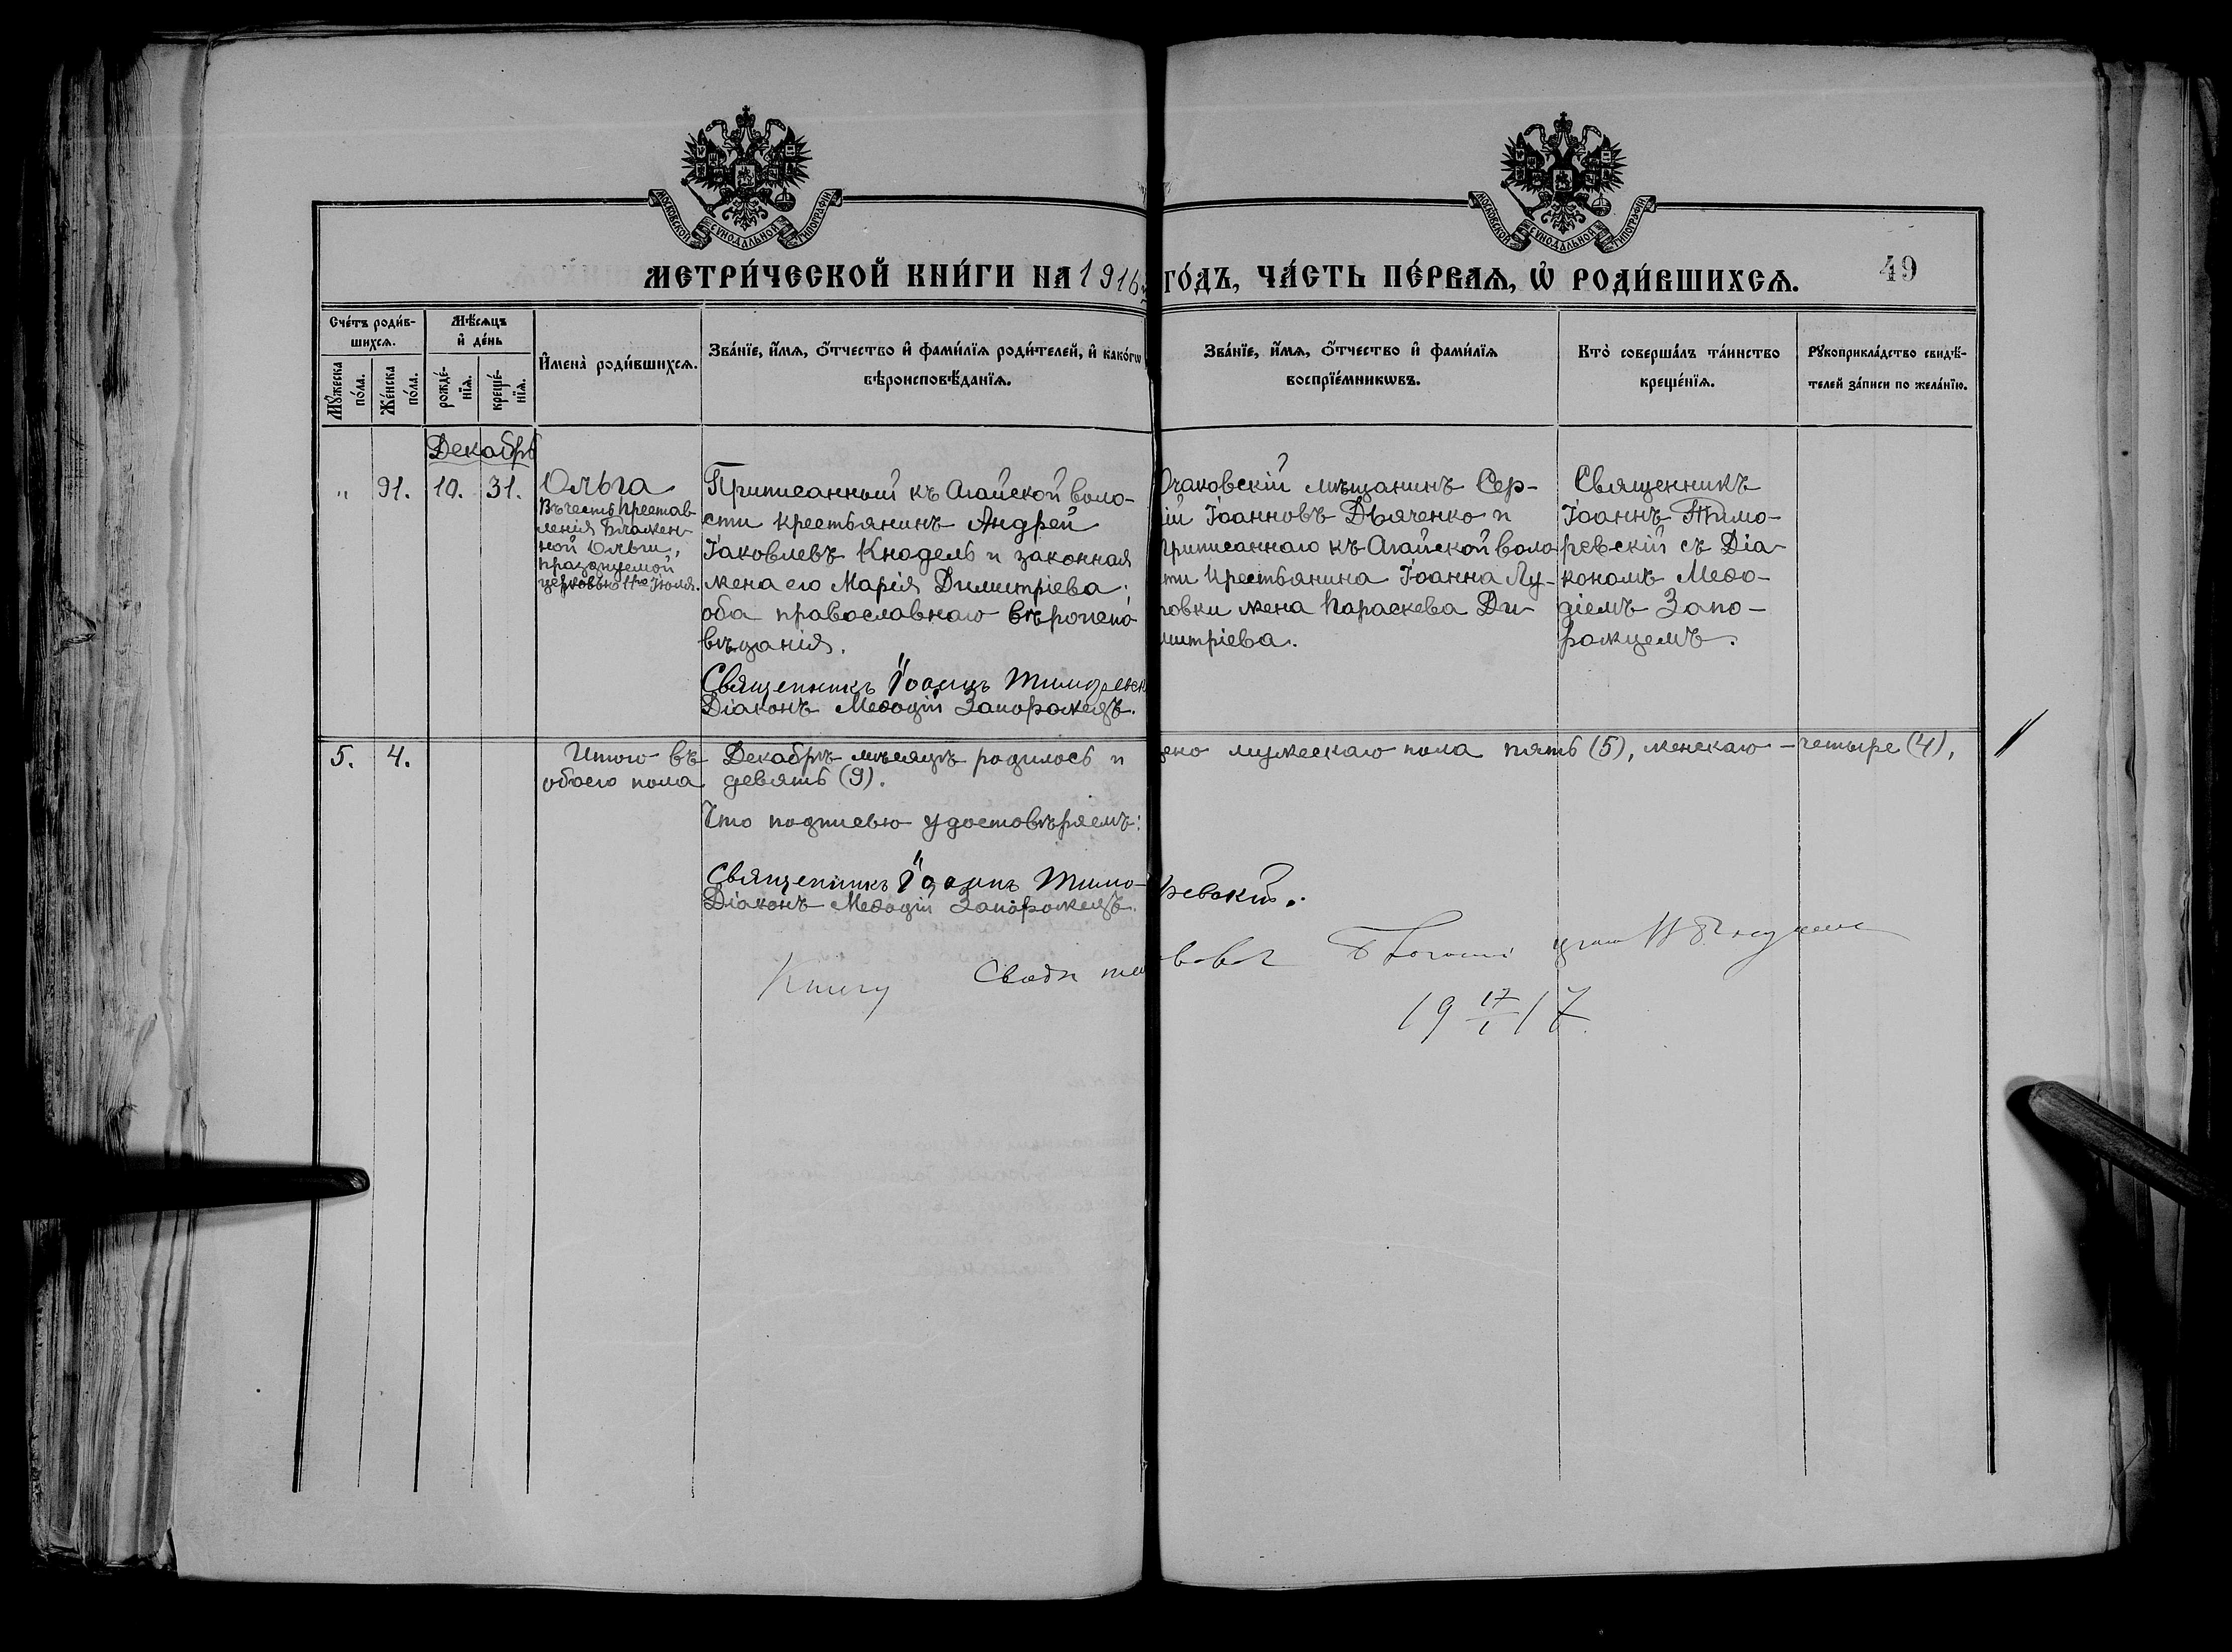 МОСКОВСКОЙ СѴНОДАЛЬНОЙ ТИПОГРАФІИ
МОСКОВСКОЙ СѴНОДАЛЬНОЙ ТИПОГРАФІИ
МЕТРИ́ЧЕСКОЙ КНИ́ГИ НА 1916 ГО́ДЪ, ЧА́СТЬ ПЕ́РВАѦ, Ѡ҆ РОДИ́ВШИХСѦ.
49
Сче́тъ роди́в-
шихсѧ.
Мꙋ́жеска
по́ла.
Же́нска
по́ла.
Мѣ́сѧцъ
и҆ де́нь
рожде́-
нїѧ.
креще́-
нїѧ.
И҆мена̀ роди́вшихсѧ.
Зва́нїе, и҆́мѧ, ѻ҆́тчество и҆ фами́лїѧ роди́телей, и҆ како́гѡ
вѣроисповѣ́данїѧ.
Зва́нїе, и҆́мѧ, ѻ҆́тчество и҆ фами́лїѧ
воспрїе́мникѡвъ.
Кто̀ соверша́лъ та́инство
креще́нїѧ.
Рꙋкоприкла́дство свидѣ́-
телей за́писи по жела́нїю.
Декабрь
" 91. 10. 31. Ольга
Въ честь Престав-
ленія Блажен-
ной Ольги,
празднуемой
церковью 11го Іюля.
Приписанный къ Агайской воло-
сти крестьянинъ Андрей
Іаковлевъ Кнодель и законная
жена его Марія Димитріева;
оба православнаго вѣроиспо
вѣданія.
Священникъ Іоаннъ Тиморевск
Діаконъ Меѳодій Запорожецъ.
Очаковскій мѣщанинъ Сер-
гій Іоанновъ Дьяченко и
приписаннаго къ Агайской воло
сти крестьянина Іоанна Лу-
говки жена Параскева Ди-
митріева.
Священникъ
Іоаннъ Тимо-
ревскій съ Діа-
кономъ Меѳо-
діемъ Запо-
рожцемъ.
5. 4. Итого въ Декабрѣ мѣсяцѣ родилось и ено мужескаго пола пять (5), женскаго - четыре (4),
обоего пола девять (9).
Что подписью удостовѣряемъ:
Священникъ Іоаннъ Тимо-ревскій.
Діаконъ Меѳодій Запорожецъ.
Книгу
19 17/1 17.